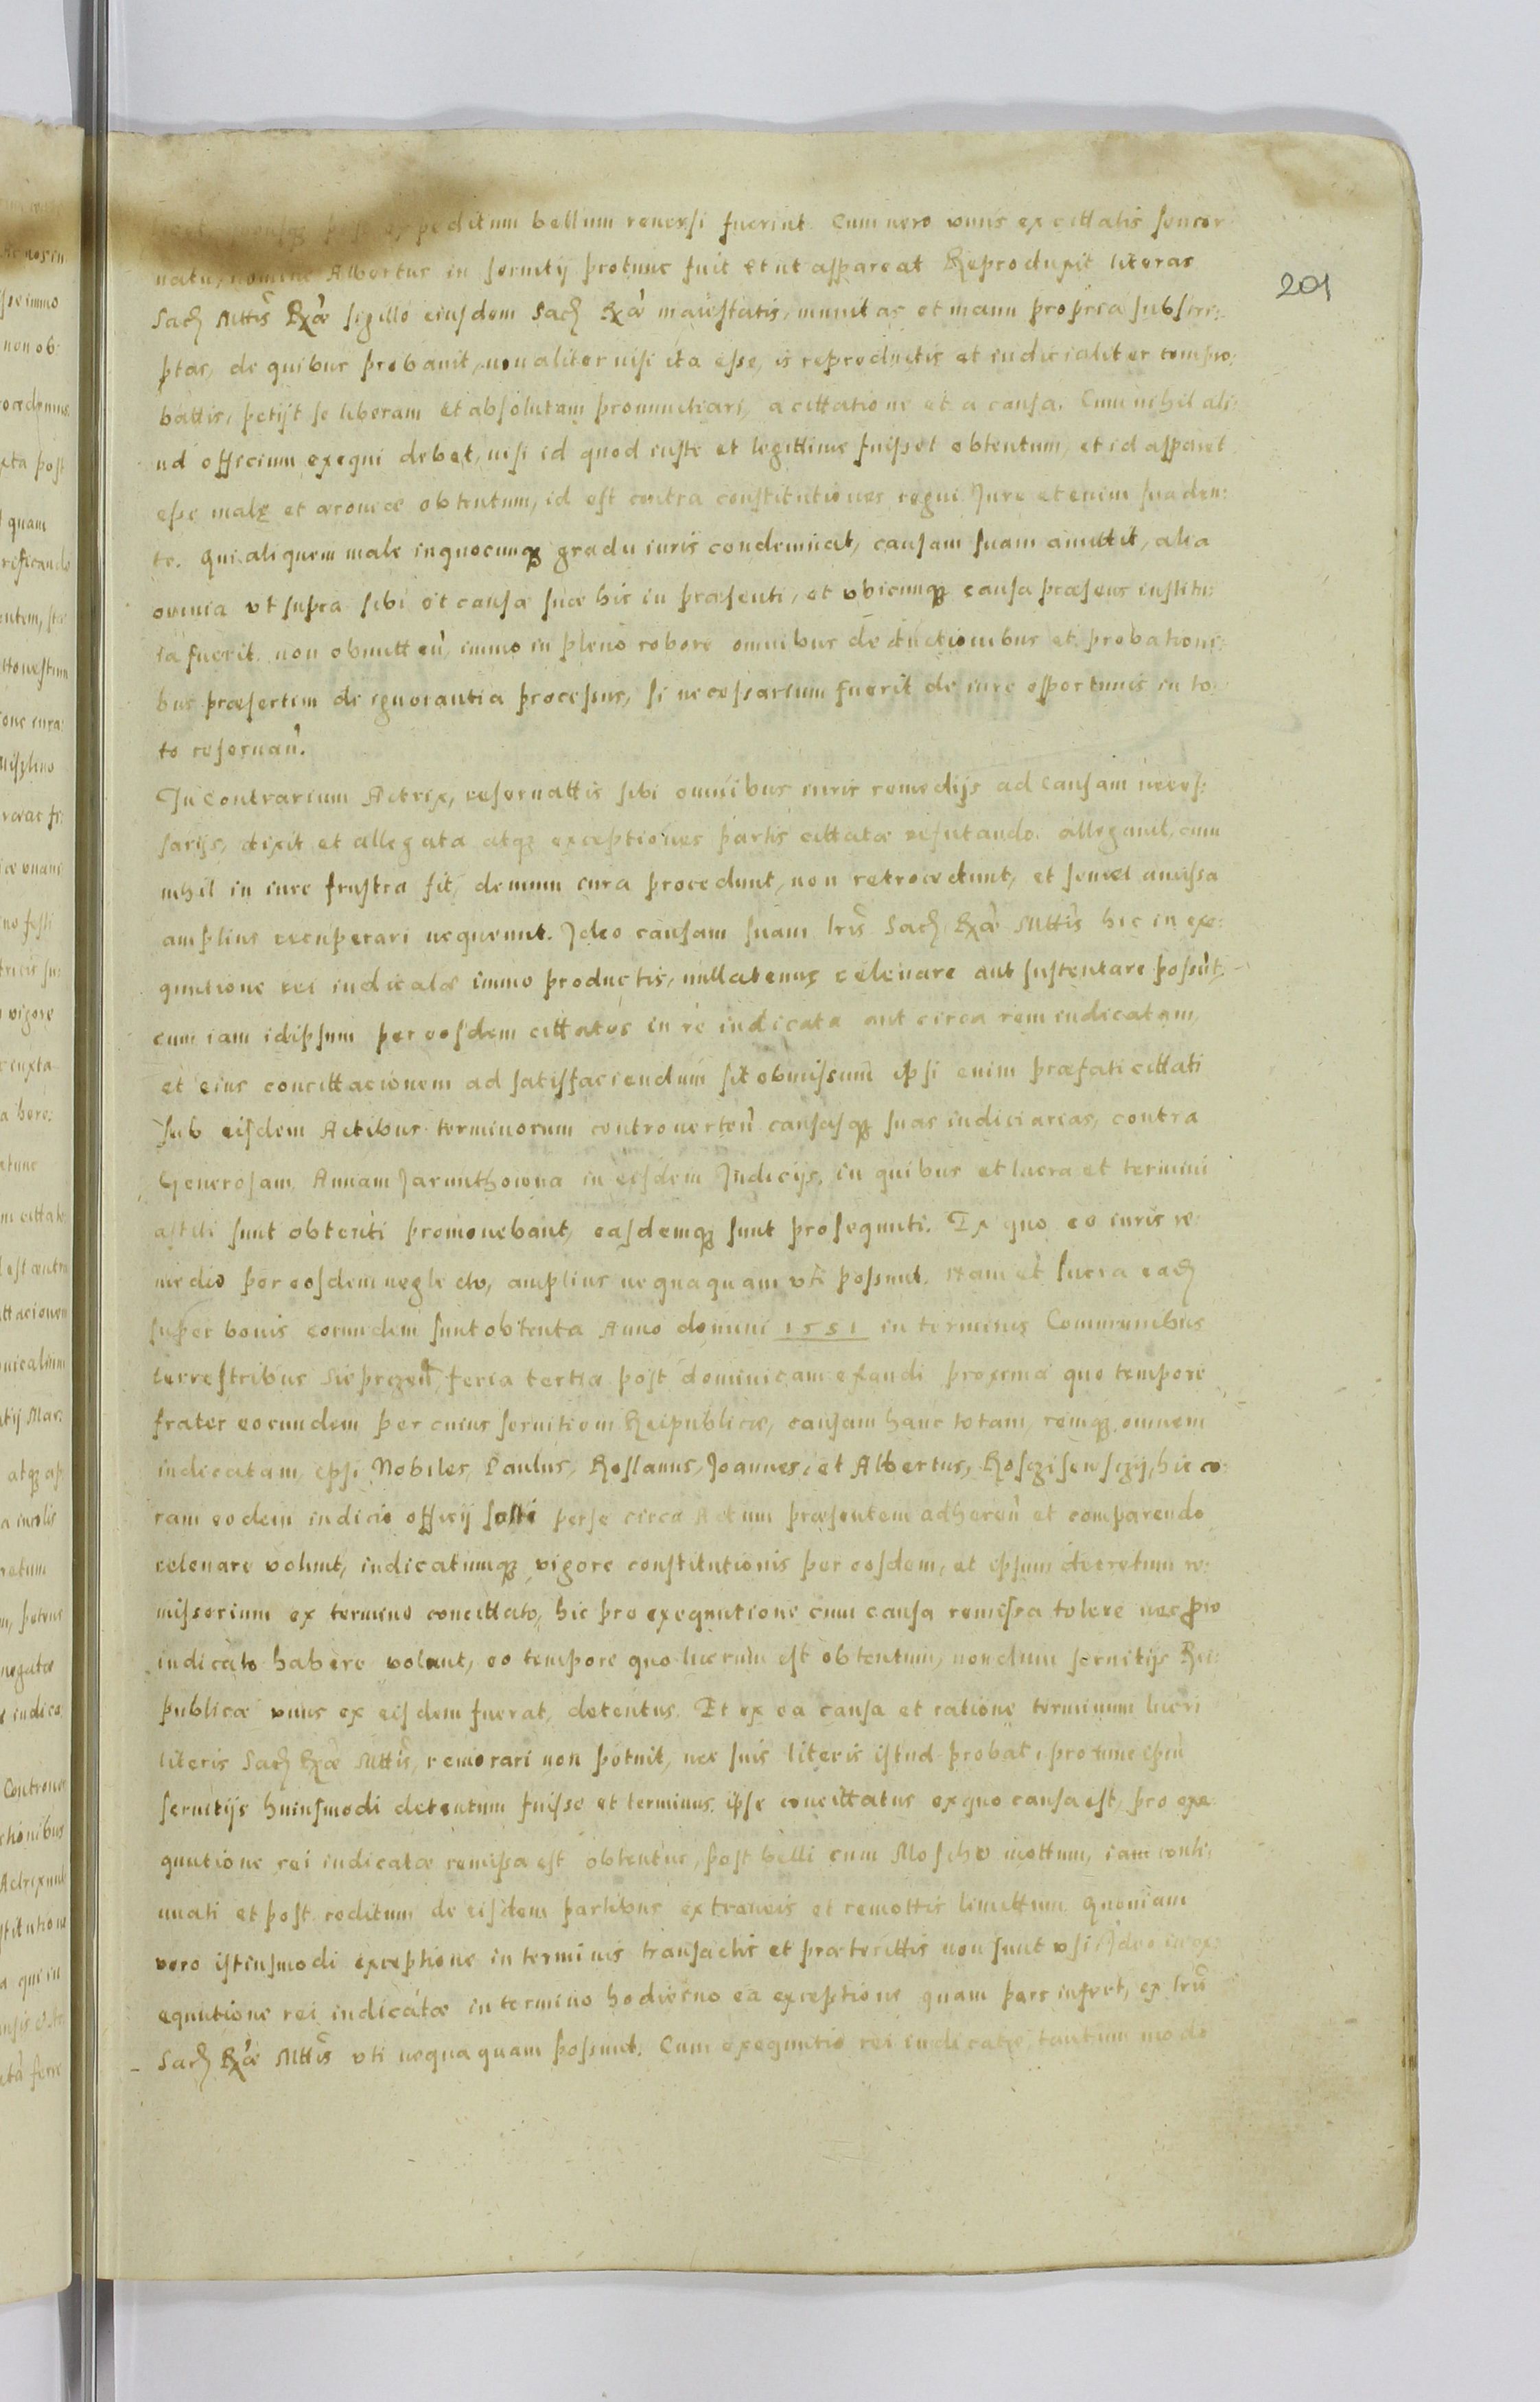 expeditum bellum reuersi fuerint. Cum uero vnus ex cittatis senior
natu, nomine Albertus in seruitij protunc fuit et ut appareat Reproduxit literas
Sacȝ Mttis Rxæ sigillo eiusdem Sacȝ Rxæ maiestatis, munitas et manu propria subscri:
ptas, de quibus probauit, non aliter nisi ita esse, is reproductis et iudicialiter compro:
battis, petijt se liberam et absolutam pronuntiari, a cittatione et a causa. Cum nihil ali:
ud officium exequi debet, nisi id quod iuste et legittime fuisset obtentum, et id apparet
esse malę et æronicæ obtentum, id est contra constitutiones regni Jure etenim suaden:
te. Qui aliquem male in quocunqȝ gradu iuris condemnat, causam suam amittit, alia
omnia vt supra sibi et causæ suæ hic in præsenti, et vbicunqȝ causa præsens institu:
ta fuerit non obmitteñ, immo in pleno robore omnibus deductionibus et probationi:
bus præsertim de ignorantia processus, si necessarium fuerit de iure opportunis in to:
to reseruañ.
In Contrarium Actrix, reseruattis sibi omnibus iuris remedijs ad causam neces:
sarijs, dixit et allegata atqȝ exceptiones partis cittatæ refutando. allegauit, cum
nihil in iure frustra fit, demum iura procedunt, non retrocedunt, et semel amissa
amplius recuperari nequeunt. Ideo causam suam lris Sacȝ Rxæ Mttis hic in exe:
quutione rei iudicatæ immo productis, nullatenus releuare aut sustentare possut,
cum iam idipsum per eosdem cittatos in re iudicata aut circa rem iudicatam,
et eius concittacionem ad satisfaciendum sit obmissum ipsi enim præfati cittati
sub eisdem Actibus terminorum controuerteñ causasqȝ suas iudiciarias, contra
Generosam, Annam Jarunthowna in eisdem Judicijs, in quibus et lucra et termini
astiti sunt obtenti promouebant, easdemqȝ sunt prosequuti. Ex quo eo iuris re:
medio per eosdem neglecto, amplius nequaquam vti possunt. Nam et lucra eadȝ
super bonis eorundem sunt obtenta Anno domini 1551 in terminis Communibus
terrestribus Sieprczeñ, feria tertia post dominicam exaudi proxima quo tempore
frater eorundem per cuius seruitiom Reipublicæ, causam hanc totam, remqȝ omnem
iudicatam, ipsi Nobiles Paulus, Roslanus, Joannes, et Albertus, Rosczisewsczij, hic co:
ram eodem iudicio officij per se circa Actum præsentem adhereñ et comparendo
releuare volunt, iudicatumqȝ vigore constitutionis per eosdem, et ipsum decretum re:
missorium ex termino concittato, hic pro exequutione cum causa remissa tolere nec pro
iudicato habere volunt, eo tempore quo lucrum est obtentum, nondum seruitijs Rei:
publicæ vnus ex eisdem fuerat, detentus. Et ex ea causa et ratione terminum lucri
literis Sacȝ Rxæ Mttis, remorari non potuit, nec suis literis istud probat, protunc ipsũ
seruitijs huiusmodi detentum fuisse et terminus, ipse concittatus ex quo causa est, pro exe:
quutione rei iudicatæ remissa est obtentus, post belli cum Moscho mottum, iam conti:
nuati et post reditum de eisdem partibus extraneis et remottis limittum. Quoniam
vero istiusmodi exceptione in terminis transactis et præterittis non sunt vsi Ideo in ex:
equutione rei iudicatæ in termino hodierno ea exceptione quam pars infert, ex lris
Sacȝ Rxæ Mttis vti nequaquam possunt. Cum exequutio rei iudicatæ, tantum modo
201